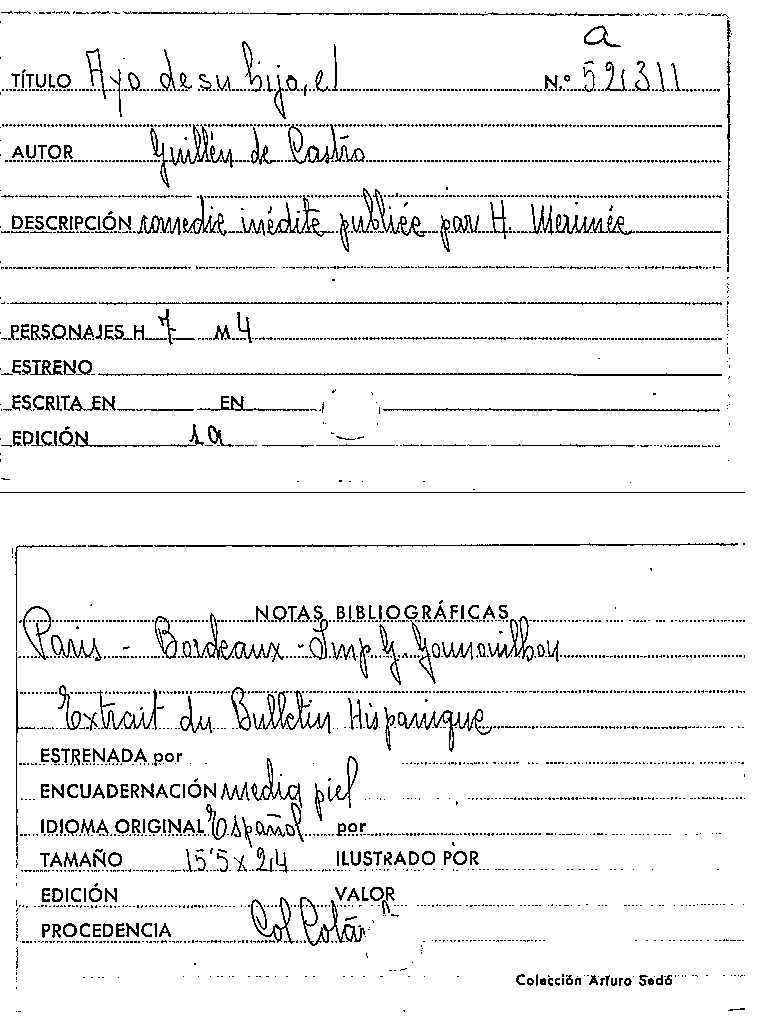 a
TÍTULO Ayo de su hijo, el N.º 52311
AUTOR Guillén de Castro
DESCRIPCIÓN comedie inédite publiée par H. Merimée
PERSONAJES H 7 M 4
ESTRENO
ESCRITA EN EN
EDICIÓN 1a
NOTAS BIBLIOGRÁFICAS
Paris - Bordeaux - Imp G. Gounouilhou
Extrait du Bulletin Hispanique
ESTRENADA por
ENCUADERNACIÓN media piel
IDIOMA ORIGINAL Español por
TAMAÑO 15'5 x 24 ILUSTRADO POR
EDICIÓN VALOR
PROCEDENCIA Col
Colección Arturo Sedó